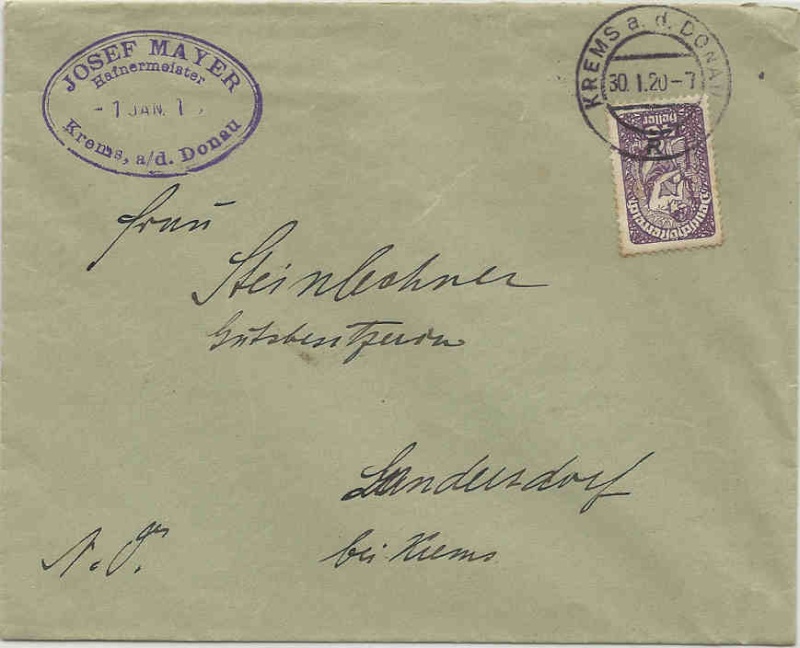 JOSEF MAYER
Hafnermeister
- 1 JAN. 1
Krems, a/d. Donau
KREMS a. d. DONAU
30. 1. 20 - 7
heller
Frau
Steinlechner
Gutsbesitzerin
Landersdorf
bei Krems
N. Ö.